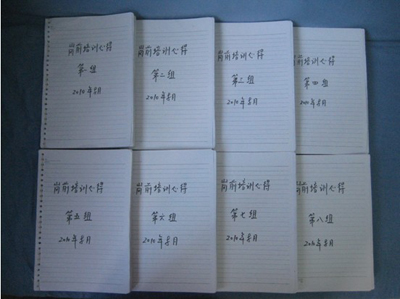 岗前培训心得
第一组
2010年8月
岗前培训心得
第二组
2010年8月
岗前培训心得
第三组
2010年8月
岗前培训心得
第四组
2010年8月
岗前培训心得
第五组
2010年8月
岗前培训心得
第六组
2010年8月
岗前培训心得
第七组
2010年8月
岗前培训心得
第八组
2010年8月